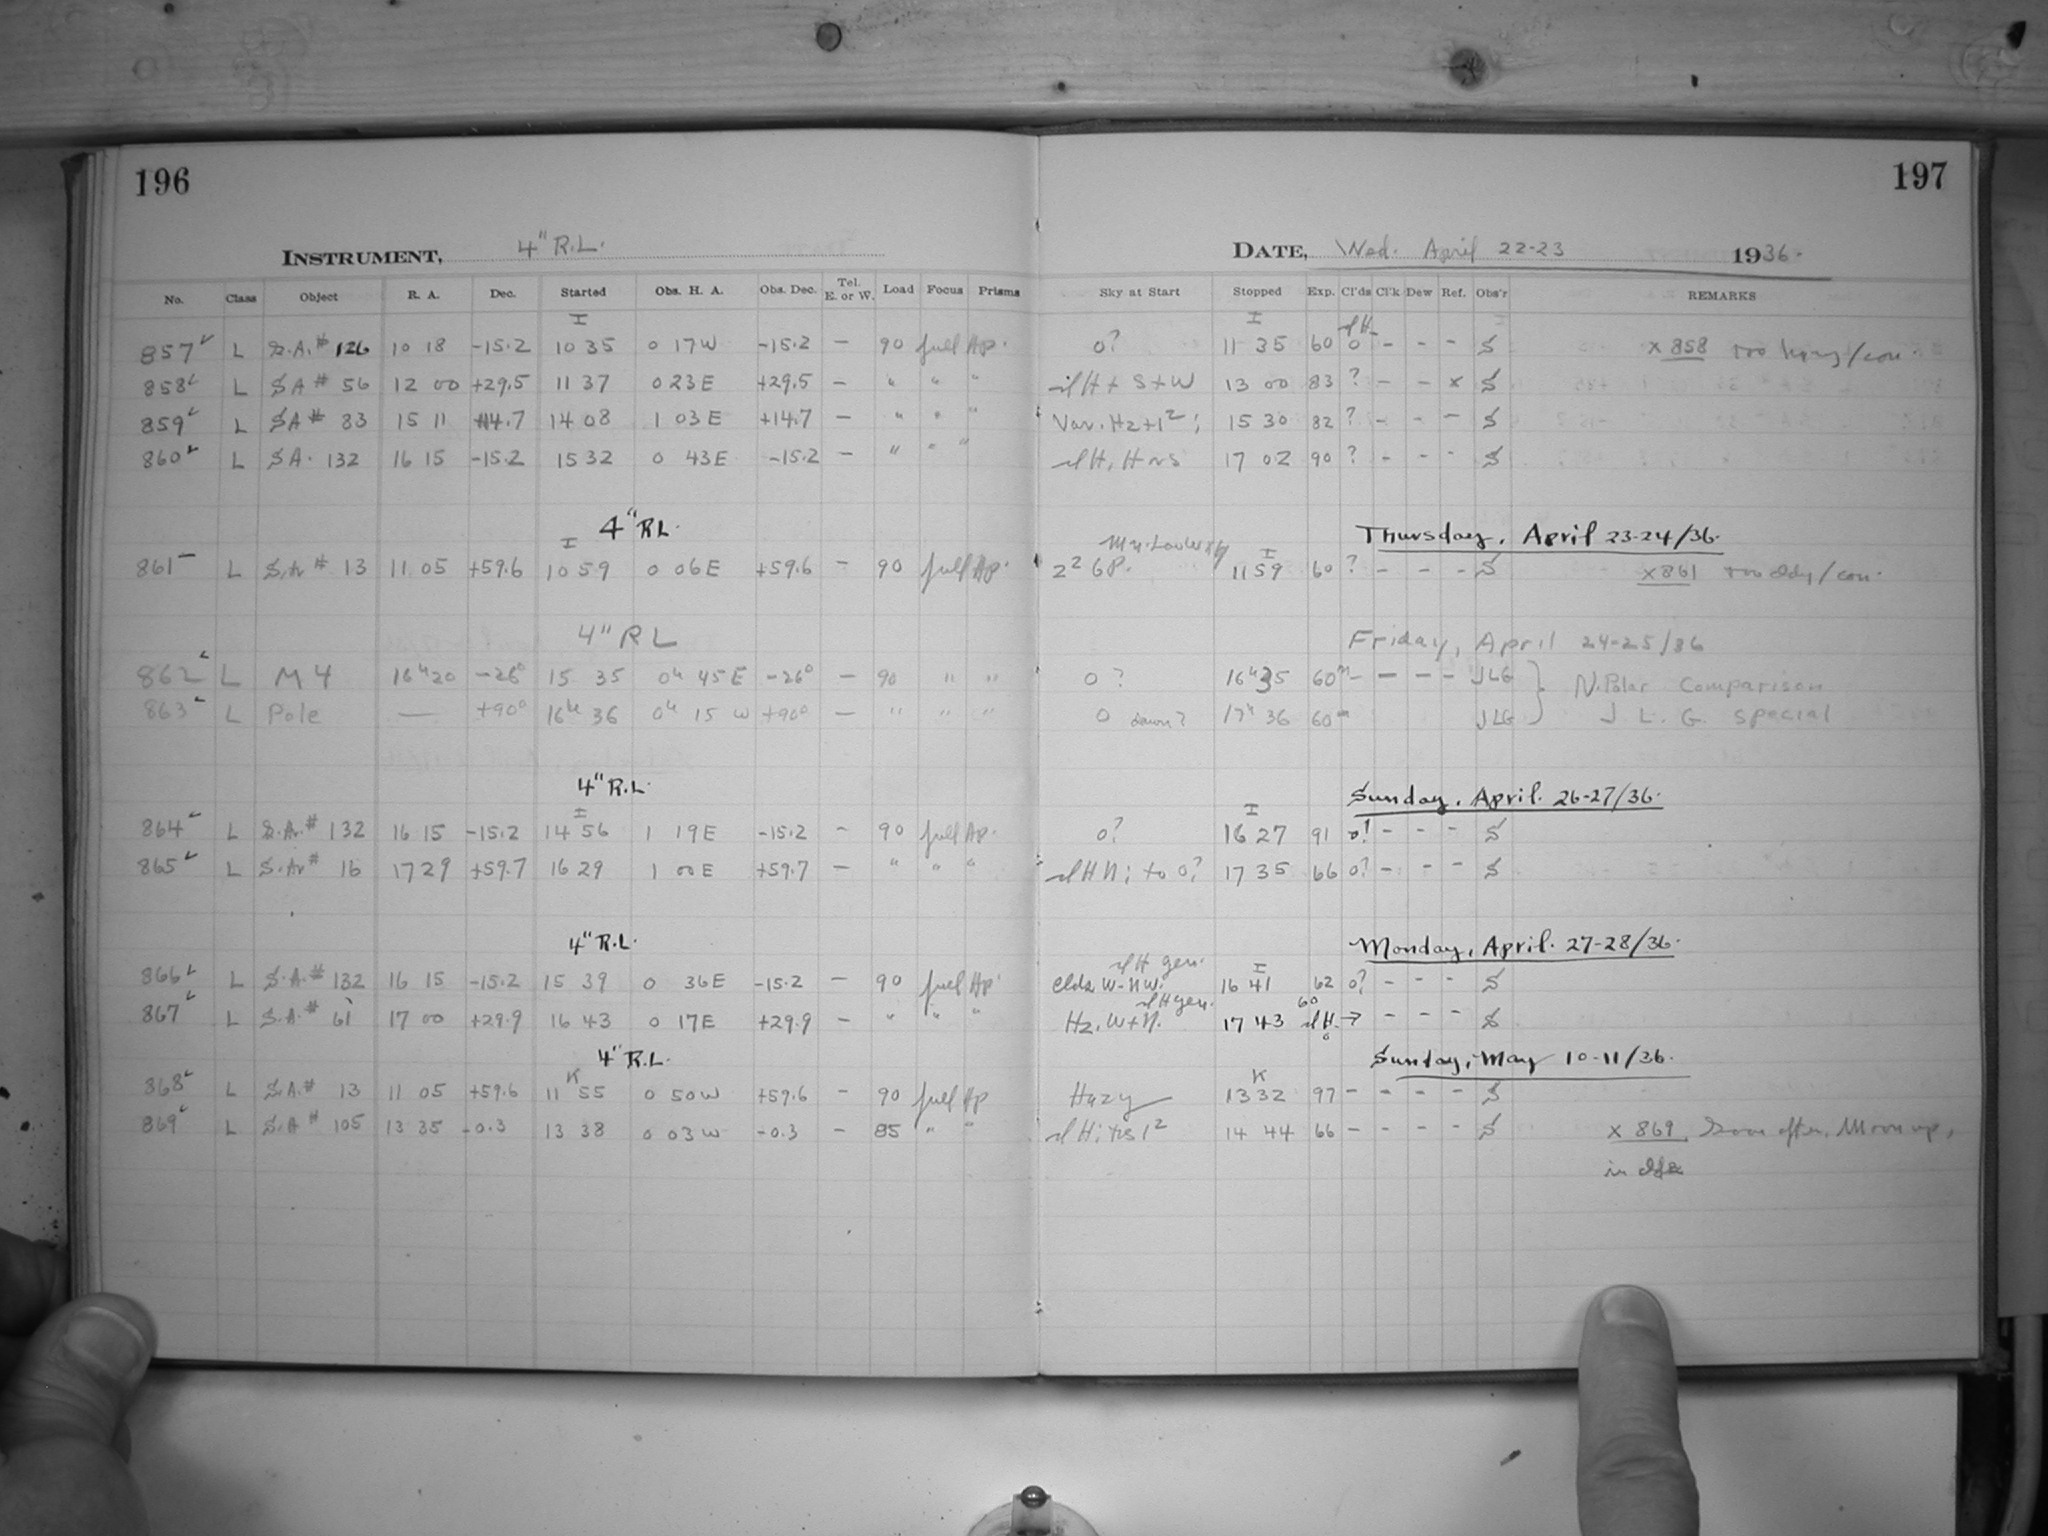 196
197
INSTRUMENT, 4" R.L.
DATE, Wed. April 22-23 1936.
No. Class Object R. A. Dec. Started Obs. H. A. Obs. Dec. Tel. E. or W. Load Focus Prisms Sky at Start Stopped Exp. Cl'ds Cl'k Dew Ref. Obs'r REMARKS
I I
857 L S.A.# 126 10 18 -15.2 10 35 0 17W -15.2 - 90 full Ap. 0? 11 35 60 0 - - - S x 858 too hazy/con.
858 L SA # 56 12 00 +29.5 11 37 0 23E +29.5 - " " " H + S + W 13 00 83 ? - - x S
859 L SA # 83 15 11 +14.7 14 08 1 03E +14.7 - " " " Var. Hz + 1²; 15 30 82 ? - - - S
860 L SA. 132 16 15 -15.2 15 32 0 43E -15.2 - " " " 17 02 90 ? - - - S
4" R.L. Thursday, April 23-24/36.
I I
861 L S.A. # 13 11 05 +59.6 10 59 0 06E +59.6 - 90 full Ap. 2² GP. 11 59 60 ? - - - S x 861 too /con.
4" R L Friday, April 24-25/36
862 L M 4 16h20 -26° 15 35 0h 45E -26° - 90 " " 0 ? 16h35 60m - - - - JLG N. Polar Comparison
863 L Pole — +90° 16h 36 0h 15 W +90° - " " " 0 dawn? 17h 36 60m JLG J. L. G. special
4" R.L. Sunday, April. 26-27/36.
I I
864 L S.A.# 132 16 15 -15.2 14 56 1 19E -15.2 - 90 full Ap. 0? 16 27 91 0! - - - S
865 L S.A.# 16 17 29 +59.7 16 29 1 00E +59.7 - " " " H N; to 0? 17 35 66 0? - - - S
4" R.L. Monday, April. 27-28/36.
H gen. I
866 L S.A.# 132 16 15 -15.2 15 39 0 36E -15.2 - 90 full Ap. clds W-NW. 16 41 62 0? - - - S
H gen. 60
867 L S.A.# 61 17 00 +29.9 16 43 0 17E +29.9 - " " " Hz. W+N. 17 43 H. → - - - S
4" R.L. Sunday, May 10-11/36.
K K
868 L S.A.# 13 11 05 +59.6 11 55 0 50W +59.6 - 90 full Ap Hazy 13 32 97 - - - - S
869 L S.A # 105 13 35 -0.3 13 38 0 03W -0.3 - 85 " " 14 44 66 - - - - S x 869 Soon after, Moon up,
in